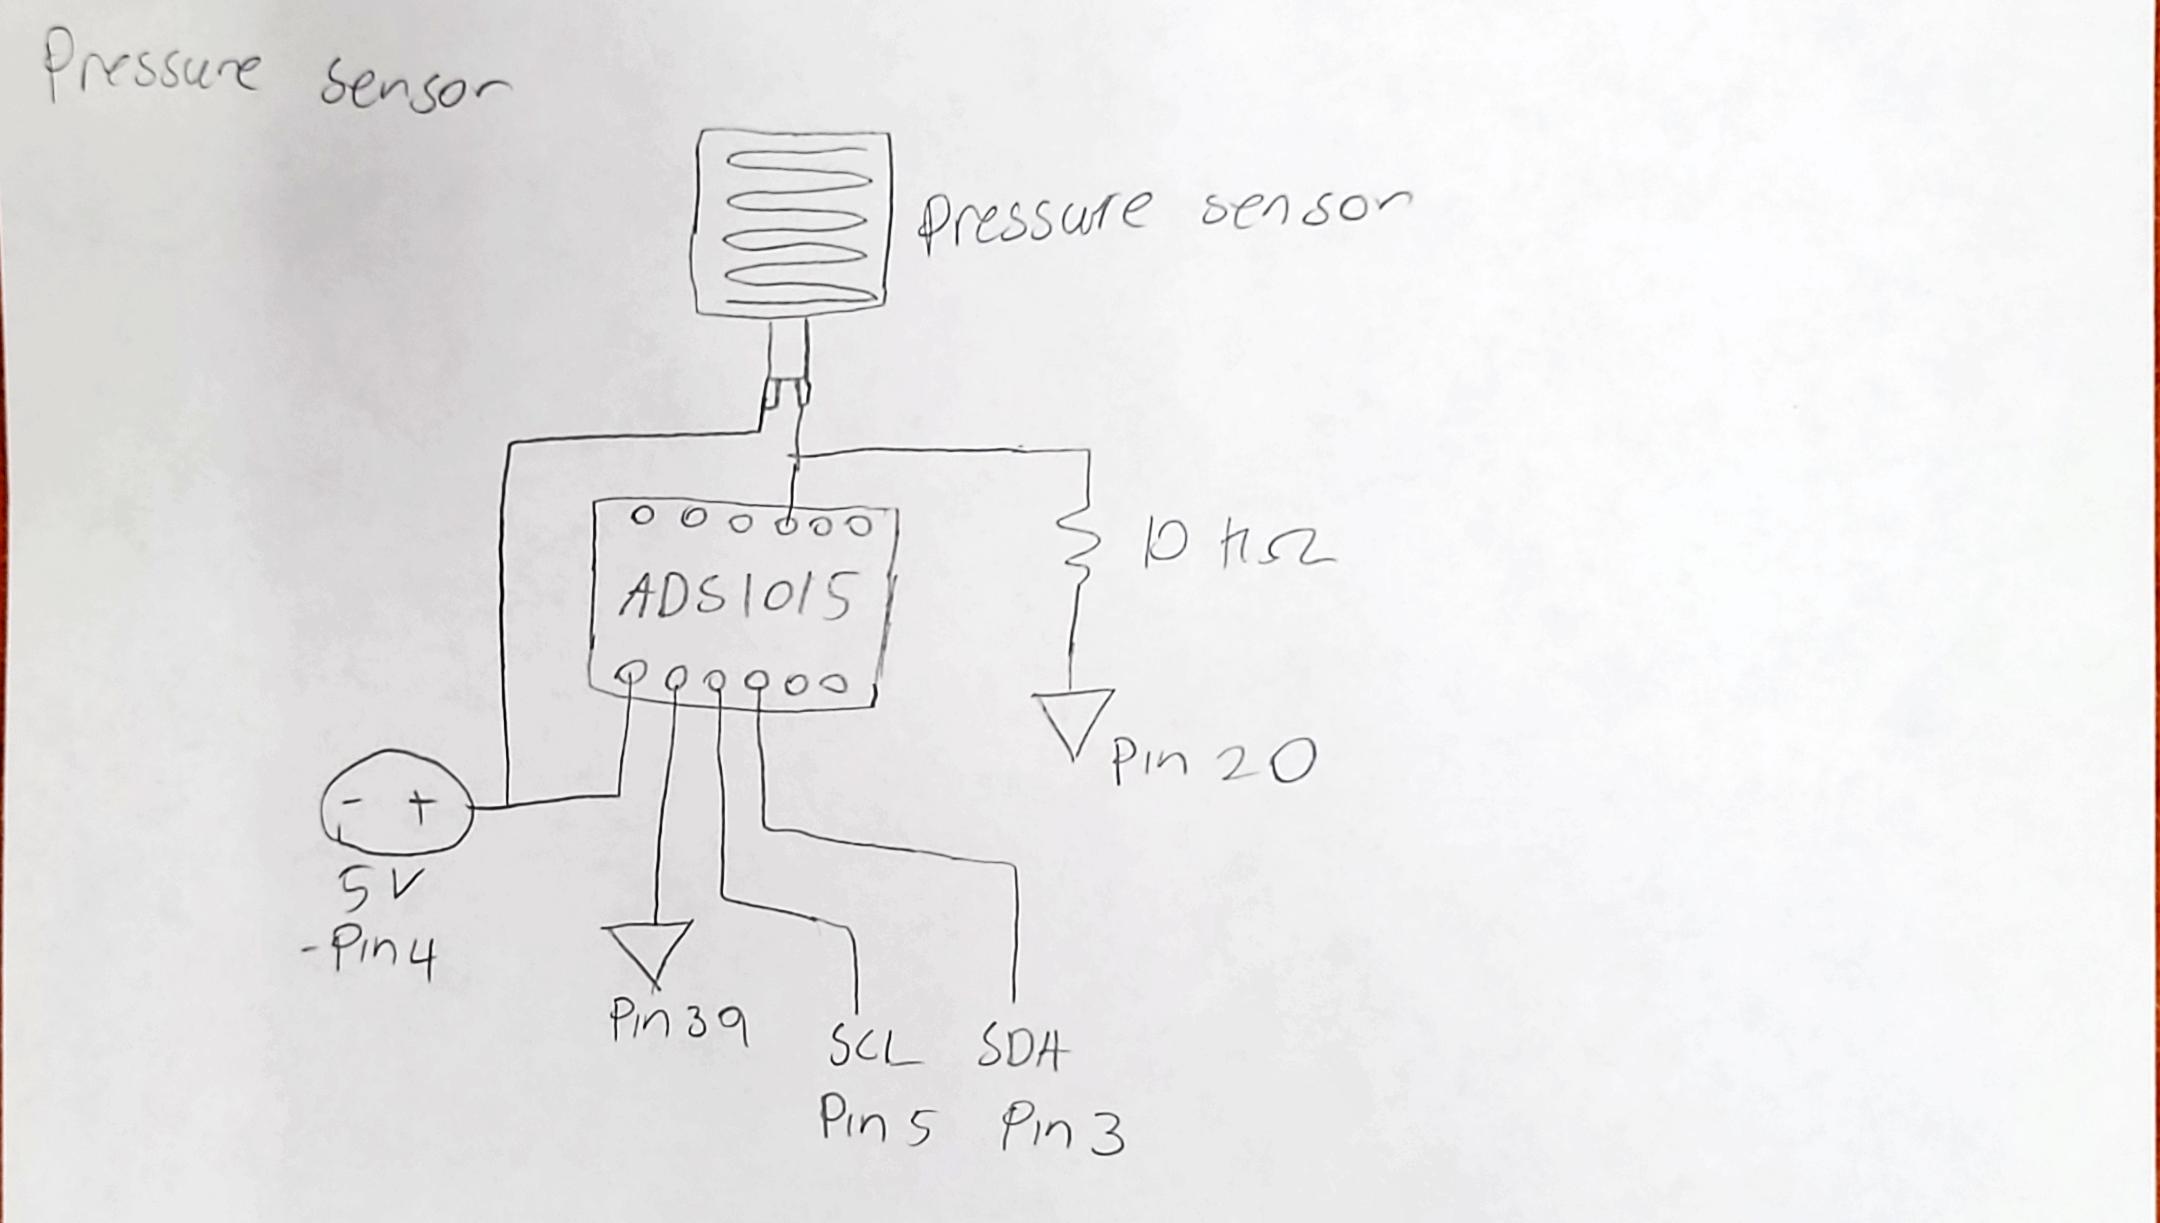 Pressure sensor
Pressure sensor
ADS1015
10 kΩ
Pin 20
- +
5V
-Pin 4
Pin 39
SCL SDA
Pin 5 Pin 3